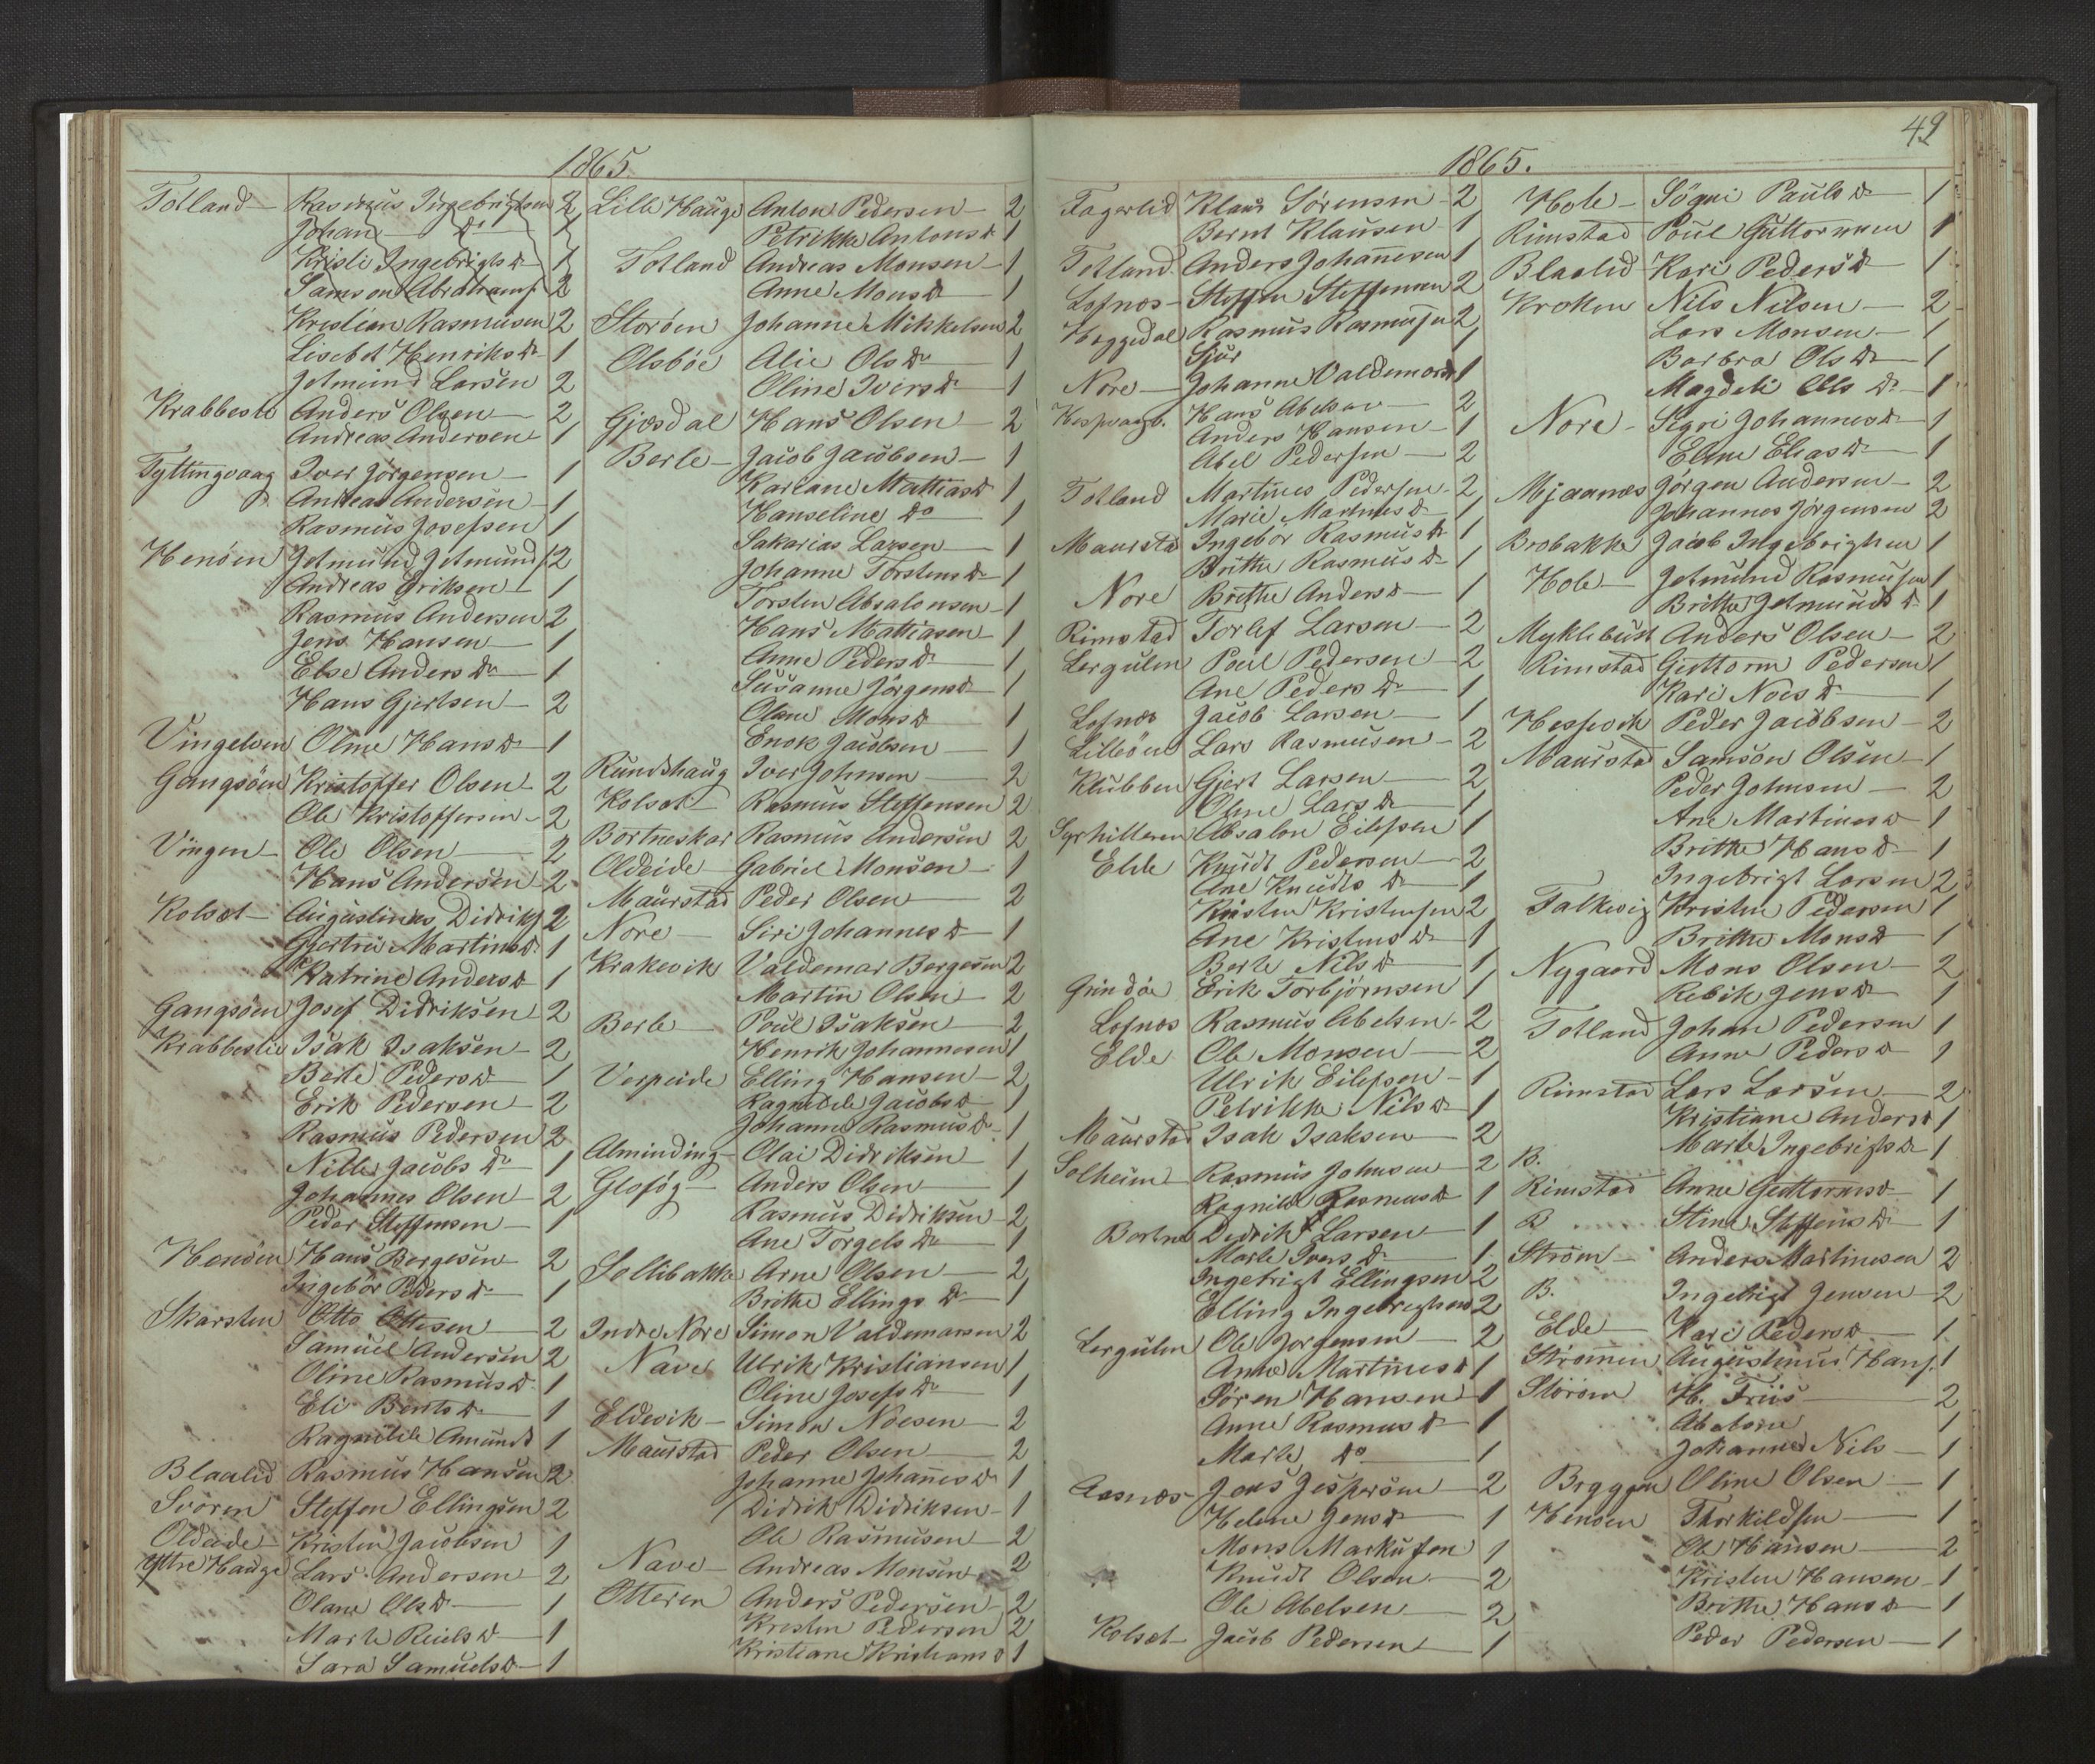 1865
Totland - Rasmus Ingebrigtsen 2
Johan do 1
Kristi Ingebrigts d. 1
Samson Abrahams. 2
Kristian Rasmusen 2
Lisebet Henriks d. 1
Jetmund Larsen 2
Krabbesti Anders Olsen - 2
Andreas Andersen 1
Tyttingvaag Iver Jörgensen - 1
Andreas Andersen - 1
Rasmus Josefsen 1
Henöen Jetmund Jetmunds. 2
Andreas Eriksen - 1
Rasmus Andersen 2
Jens Hansen - 1
Else Anders d. - 1
Hans Gjertsen - 2
Vingelven Oline Hans d. - 1
Gangsöen Kristoffer Olsen - 2
Ole Kristoffersen - 2
Vingen - Ole Olsen - 2
Hans Andersen - 2
Kolset - Augustinus Didriks. 2
Gjertrü Martins d. 1
Katrine Anders d. 1
Gangsöen Josef Didriksen 2
Krabbestie Isak Isaksen - 2
Berte Peders d. - 1
Erik Pedersen - 2
Rasmus Pedersen 2
Nille Jacobs d. - 1
Johannes Olsen - 2
Peder Steffensen - 1
Henöen Hans Borgesen - 2
Ingebör Peders d. - 1
Skarsten Otto Ottesen - 2
Samuel Andersen 2
Oline Rasmus d. 1
Eli Bents d. - 1
Ragnilde Amunds 1
Blaalid Rasmus Hansen 2
Svören Steffen Ellingsen 2
Oldeide - Kristen Jacobsen 1
Yttre Hauge Lars Andersen - 2
Olane Ols d. - 1
Marte Reiels d. - 1
Sara Samuels d. - 1
Lille Hauge Anton Pedersen - 2
Petrikke Antons d. 1
Totland Andreas Monsen - 1
Anne Mons d. - 1
Storöen Johanne Mikkelsen 2
Olsböe Alie Ols d. - 1
Oline Ivers d. - 1
Gjosdal Hans Olsen - 2
Berle - Jacob Jacobsen - 1
Kariane Mattias d. 1
Hanseline do - 1
Sakarias Larsen - 1
Johanne Torstens d. - 1
Torsten Absalonsen - 1
Hans Mattiasen - 1
Anne Peders d. - 1
Susanne Jörgens d. 1
Olane Mons d. - 1
Enok Jacobsen - 1
Rundshaug Iver Johnsen - 2
Kolset - Rasmus Steffensen 2
Bortneskar Rasmus Andersen 2
Oldeide - Gabriel Monsen - 1
Maurstad Peder Olsen - 2
Nore - Siri Johannes d. - 1
Krakevik Valdemar Bergesen 2
Martin Olsen - 2
Berle - Poul Isaksen - 2
Henrik Johannesen 1
Verpeide Elling Hansen - 2
Ragnilde Jacobs d. - 1
Johanne Rasmus d. - 1
Alminding - Olai Didriksen - 1
Glosög - Anders Olsen - 1
Rasmus Didriksen - 2
Ane Torgels d. - 1
Sellibakke Arne Olsen - 2
Brithe Ellings d. - 1
Indre Nore Simon Valdemarsen 2
Nave Ulrik Kristiansen 1
Oline Josefs d. 1
Eldevik - Simon Noesen - 2
Maurstad Peder Olsen - 2
Johanne Johañes d. 1
Didrik Didriksen - 1
Ole Rasmusen - 2
Nave - Andreas Monsen 2
Otteren Anders Pedersen - 2
Kresten Pedersen 2
Kristiane Kristians d. 1
49
1865.
Fagerlid Klaus Sörensen - 2
Bernt Klausen - 1
Totland. Anders Johañesen 1
Lofnes - Steffen Steffensen 2
Heggedal Rasmus Rasmusen 2
Siur 1
Nore - Johanne Valdemars d. 1
Hespvaag. Hans Abelsen - 2
Anders Hansen - 1
Abel Pedersen - 2
Totland Martines Pedersen - 2
Marie Martines d. - 1
Maurstad Ingebör Rasmus d. 1
Brithe Rasmus d. - 1
Nore Brithe Anders d. - 1
Rimstad Torlef Larsen - 2
Lergulen Poul Pedersen - 2
Ane Peders d. - 1
Lofnes Jacob Larsen - 1
Lilleöen Lars Rasmusen - 2
Klubben Gjert Larsen - 2
Oline Lars d. - 1
Absalon Eilefsen 1
Elde Knudt Pedersen - 2
Ane Knudts d. - 1
Kristen Kristensen 2
Ane Kristens d. - 1
Berte Nils d. - 1
Grindöe Erik Torbjörnsen 1
Lofnes Rasmus Abelsen - 2
Elde Ole Monsen - 2
Ulrik Eilefsen - 1
Petrikke Nils d. 1
Maurstad Isak Isaksen - 2
Solheim Rasmus Johnsen - 2
Ragnilde Rasmus d. 1
Bortne Didrik Larsen - 1
Marte Ivers d. - 1
Ingebrigt Ellingsen 2
Elling Ingebrigtsen 2
Lergulen Ole Jorgensen - 2
Anne Martines d. 1
Sören Hansen 1
Anne Rasmus d. - 1
Marte do - 1
Aasnæs - Jens Jespersen - 2
Helene Jens d. - 1
Mons Markusen 1
Knudt Olsen - 2
Ole Abelsen - 2
Kolset - Jacob Pedersen - 1
Hole - Sögni Pauls d. - 1
Rimstad Poul Guttormsen 1
Blaalid Kari Peders d. - 1
Kroken Nils Nilsen - 2
Lars Monsen - 1
Barbra Ols d. - 1
Magdeli Ols d. - 1
Nore - Sigri Johannes d. - 1
Eline Elias d. - 1
Mjaanæs Jörgen Andersen - 2
Johannes Jörgensen 2
Brobakke Jacob Ingebrigtsen 1
Hole - Jetmund Rasmusen 1
Brithe Jetmunds d. 1
Myklebust Anders Olsen - 2
Rimstad Guttorm Pedersen 1
Kari Noes d. - 1
Peder Jacobsen - 2
Maurstad Samson Olsen - 1
Peder Johnsen - 2
Ane Martines d. - 1
Brithe Hans d. - 1
Ingebrigt Larsen 2
Falkevig Kristen Pedersen 1
Brithe Mons d. - 1
Nygaard Mons Olsen - 2
Rebik Jens d. - 1
Totland Johan Pedersen 1
Anne Peders d. - 1
Rimstad Lars Larsen - 2
Kristiane Anders d. 1
B. Marte Ingebrigts d. - 1
Rimstad Anne Guttorms d. - 1
B Stine Steffens d. - 1
Ström - Anders Martinesen 2
B. Ingebrigt Jensen - 2
Elde - Kari Peders d. - 1
Strömmen Augustinus Hans. 1
Ström H. Friis - 2
Abelone 1
Johannes Nils - 1
Bryggen Oline Olsen - 1
Henöen Thorkildsen - 1
Ole Hansen - 2
Kristen Hansen - 1
Brithe Hans d. - 1
Peder Pedersen - 1